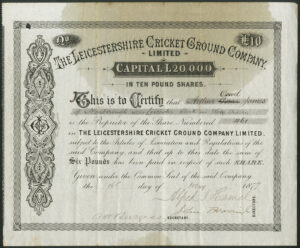 No. £10
THE LEICESTERSHIRE CRICKET GROUND COMPANY,
LIMITED
CAPITAL £20,000
IN TEN POUND SHARES.
This is to Certify that Arthur
is the Proprietor of the Share Numbered
in THE LEICESTERSHIRE CRICKET GROUND COMPANY, LIMITED,
subject to the Articles of Association and Regulations of the
said Company and that up to this date the sum of
Six Pounds has been paid in respect of such SHARE.
Given under the Common Seal of the said Company
the day of 187
SECRETARY.
DIRECTORS.